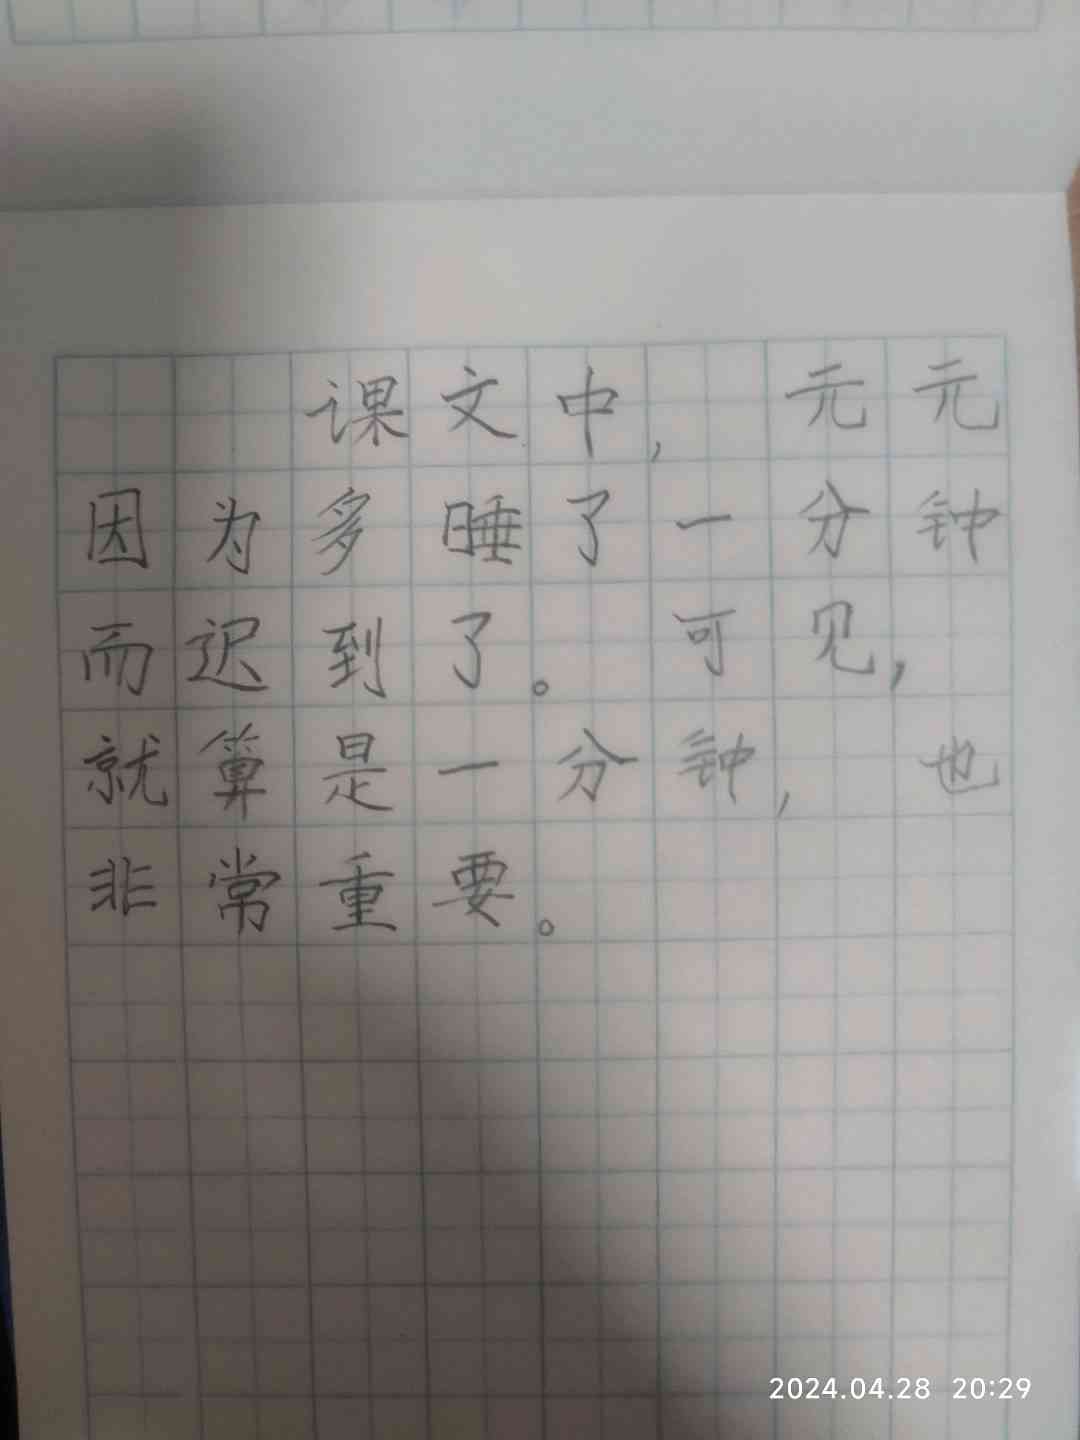 课文中，元元
因为多睡了一分钟
而迟到了。可见，
就算是一分钟，也
非常重要。
2024.04.28 20:29